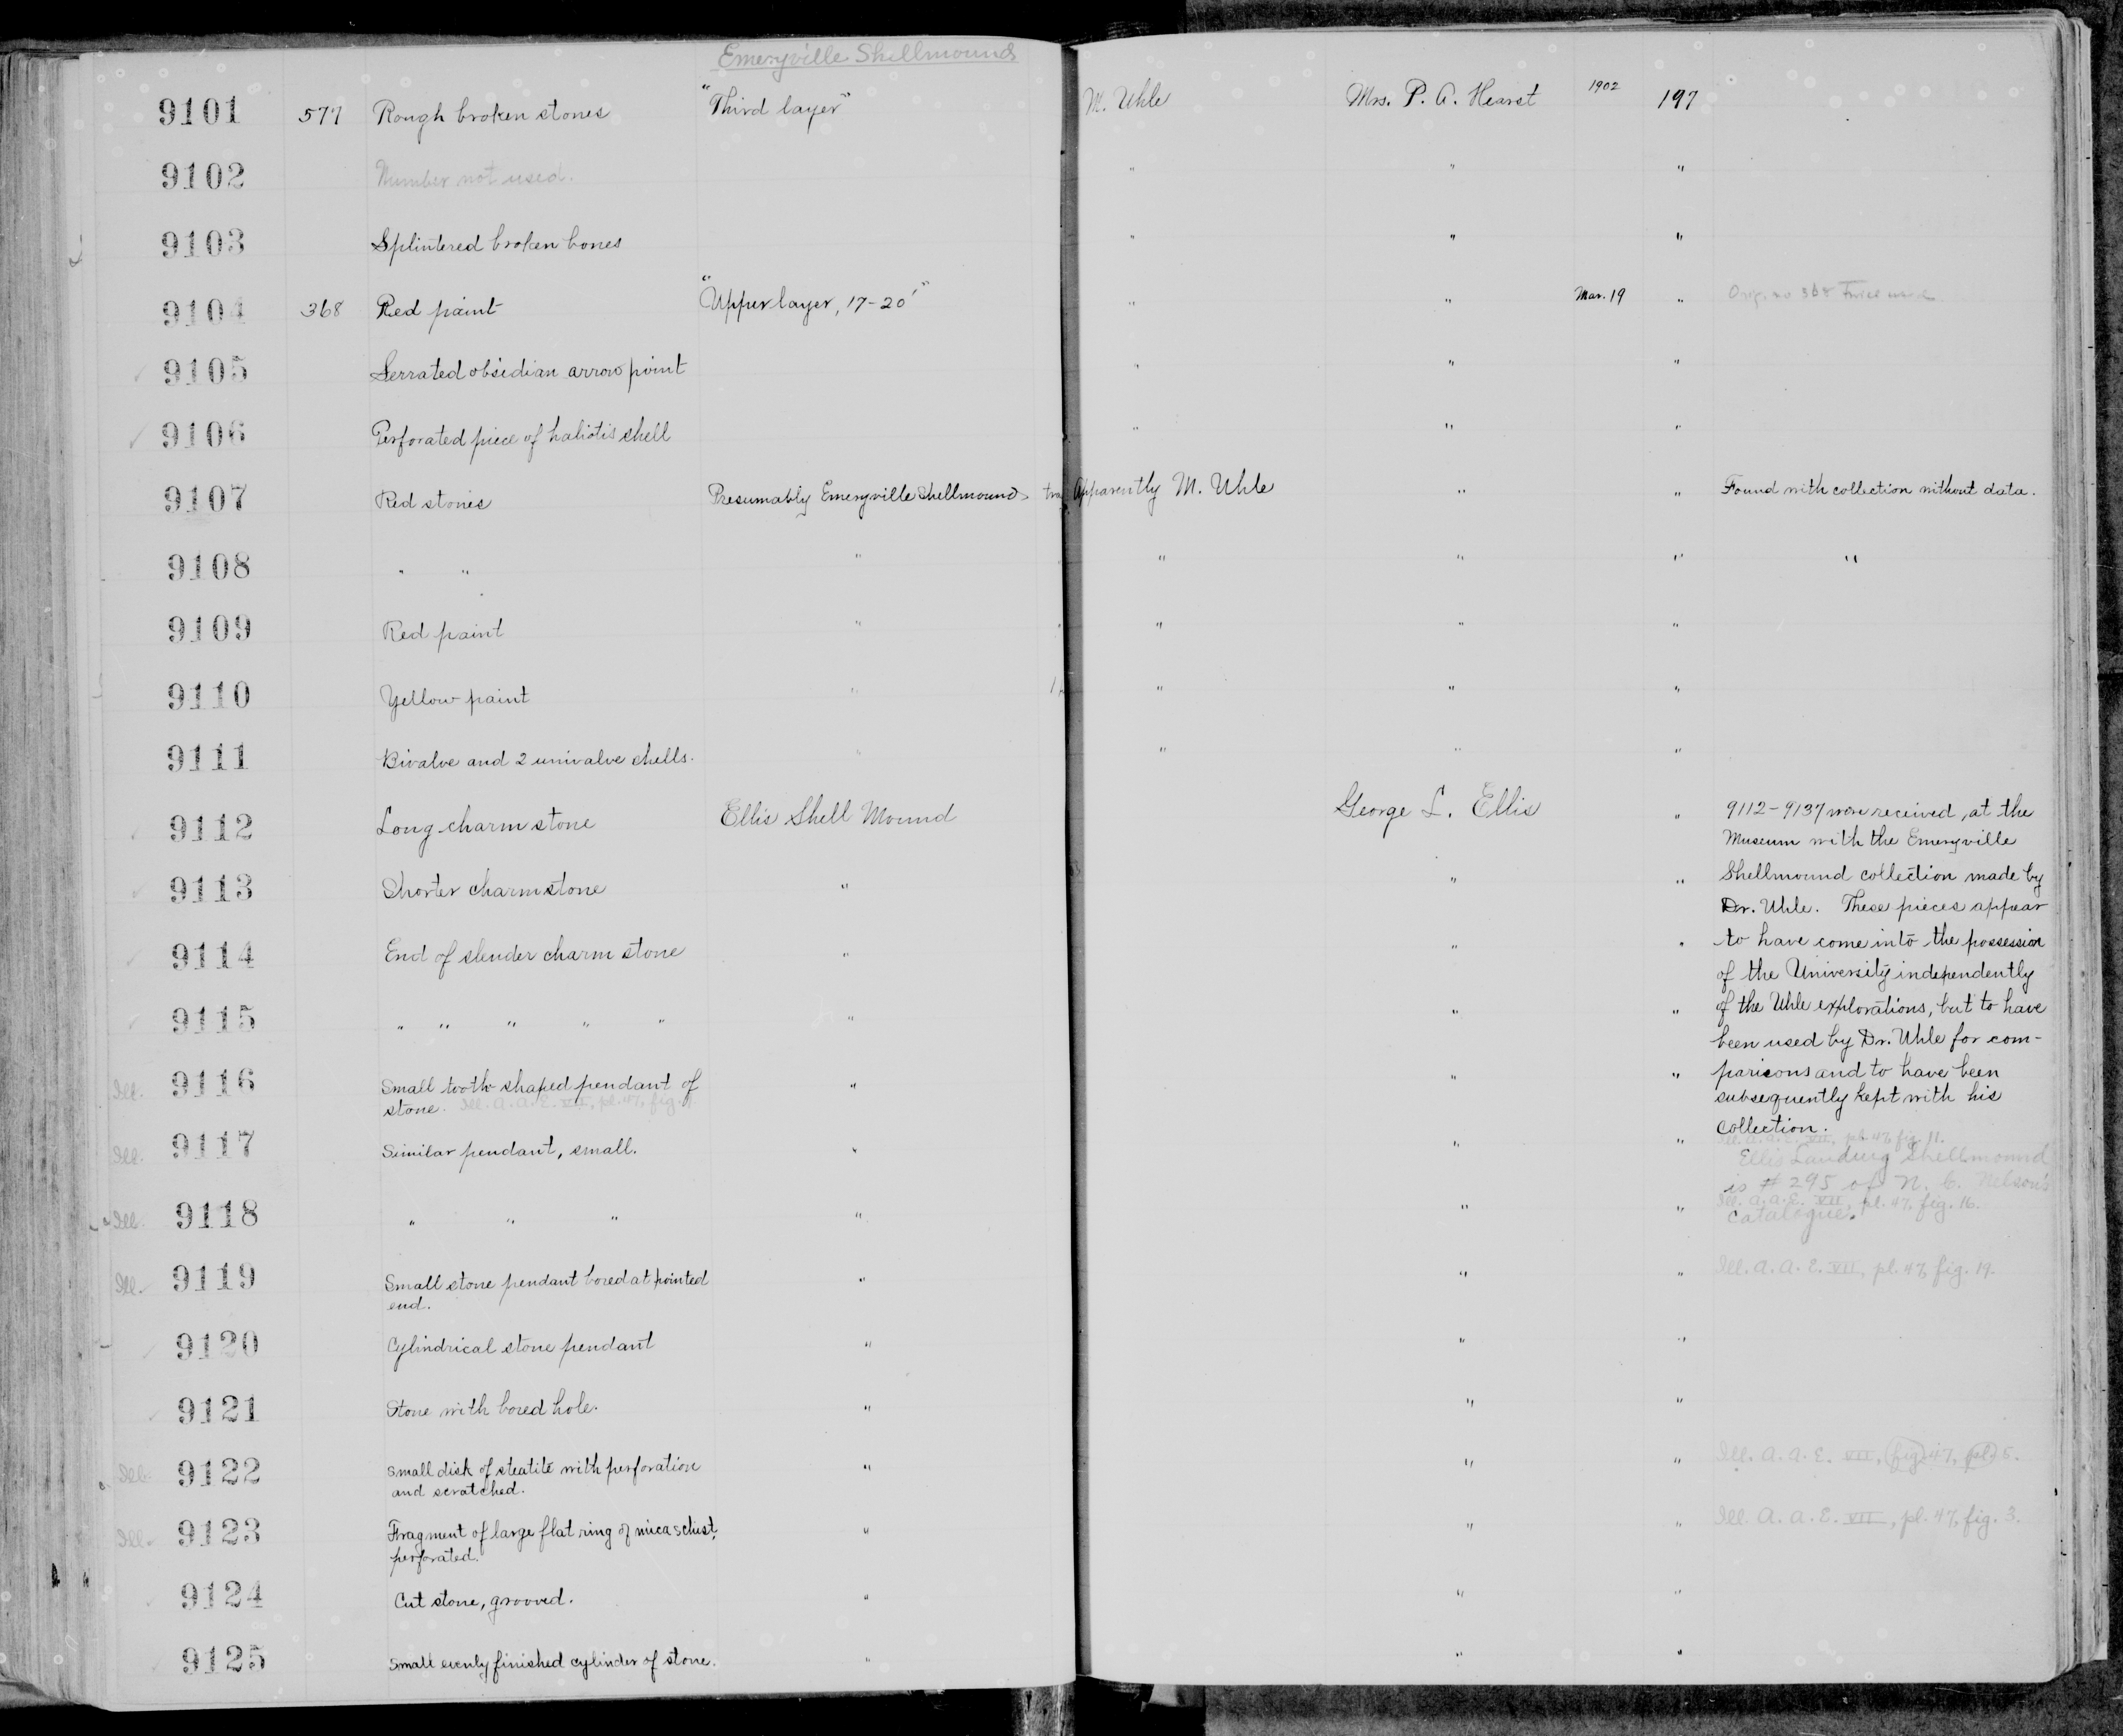 Emeryville Shellmound
9101 577 Rough broken stones "Third layer" M. Uhle Mrs. P. A. Hearst 1902 197
9102 Number not used. " " "
9103 Splintered broken bones " " "
9104 368 Red paint "Upper layer, 17-20'" " " Mar. 19 " Orig. no 368 twice used
9105 Serrated obsidian arrow point " " "
9106 Perforated piece of haliotis shell " " "
9107 Red stones Presumably Emeryville Shellmound Apparently M. Uhle " " Found with collection without data.
9108 " " " " " " "
9109 Red paint " " " "
9110 Yellow paint " " " "
9111 Bivalve and 2 univalve shells. " " " "
9112 Long charm stone Ellis Shell Mound George L. Ellis " 9112-9137 were received, at the
Museum with the Emeryville
9113 Shorter charmstone " " " Shellmound collection made by
Dr. Uhle. These pieces appear
9114 End of slender charm stone " " " to have come into the possession
of the University independently
9115 " " " " " " " " of the Uhle explorations, but to have
been used by Dr. Uhle for com-
Ill. 9116 Small tooth-shaped pendant of " " " parisons and to have been
stone. Ill. A. A. E. VII, pl. 47, fig. subsequently kept with his
collection.
Ill. 9117 Similar pendant, small. " " " Ill. A. A. E. VII, pl. 47, fig. 11.
Ellis Landing Shellmound
is # 295 of N. C. Nelson's
Ill. 9118 " " " " " " Ill. A. A. E. VII, pl. 47, fig. 16.
catalogue.
Ill. 9119 Small stone pendant bored at pointed " " " Ill. A. A. E. VII, pl. 47, fig. 19.
end.
9120 Cylindrical stone pendant " " "
9121 Stone with bored hole. " " "
Ill. 9122 Small disk of steatite with perforation " " " Ill. A. A. E. VII, fig. 47, pl. 5.
and scratched.
Ill. 9123 Fragment of large flat ring of mica schist, " " " Ill. A. A. E. VII, pl. 47, fig. 3.
perforated.
9124 Cut stone, grooved. " " "
9125 Small evenly finished cylinder of stone. " " "